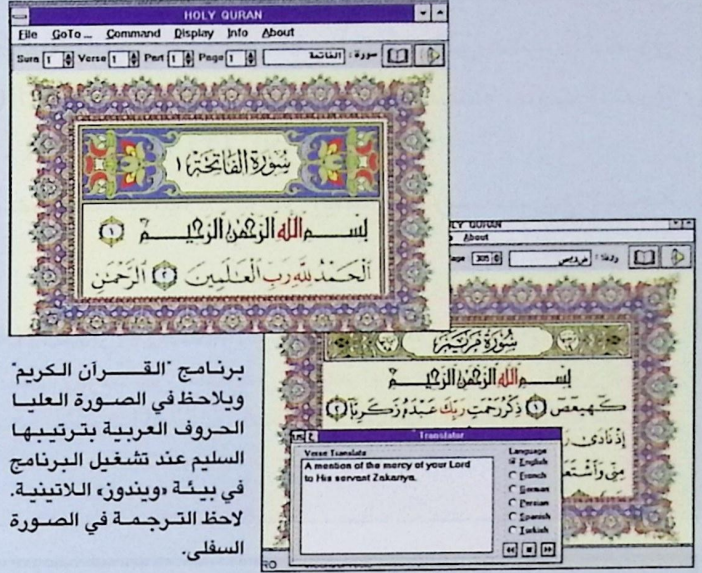 HOLY QURAN
File GoTo... Command Display Info About
Sura 1 Verse 1 Part 1 Page 1 الفاتحة سورة :
سُورَةُ الفَاتِحَة ١
بِسْمِ اللَّهِ الرَّحْمَٰنِ الرَّحِيمِ ١
الْحَمْدُ لِلَّهِ رَبِّ الْعَٰلَمِينَ ٢ الرَّحْمَٰنِ
LY QURAN
About
age 305
سُورَةُ مَرْيَم
بِسْمِ اللَّهِ الرَّحْمَٰنِ الرَّحِيمِ
كهيعص ١ ذِكْرُ رَحْمَتِ رَبِّكَ عَبْدَهُ زَكَرِيَّا ٢
إِذْ نَادَى
مِنِّي وَاشْتَعَ
Translator
Verse Translate
A mention of the mercy of your Lord
to His servant Zakariya.
Language
English
French
German
Persian
Spanish
Turkish
برنامج "القرآن الكريم"
ويلاحظ في الصورة العليا
الحروف العربية بترتيبها
السليم عند تشغيل البرنامج
في بيئة «ويندوز» اللاتينية.
لاحظ الترجمة في الصورة
السفلى.